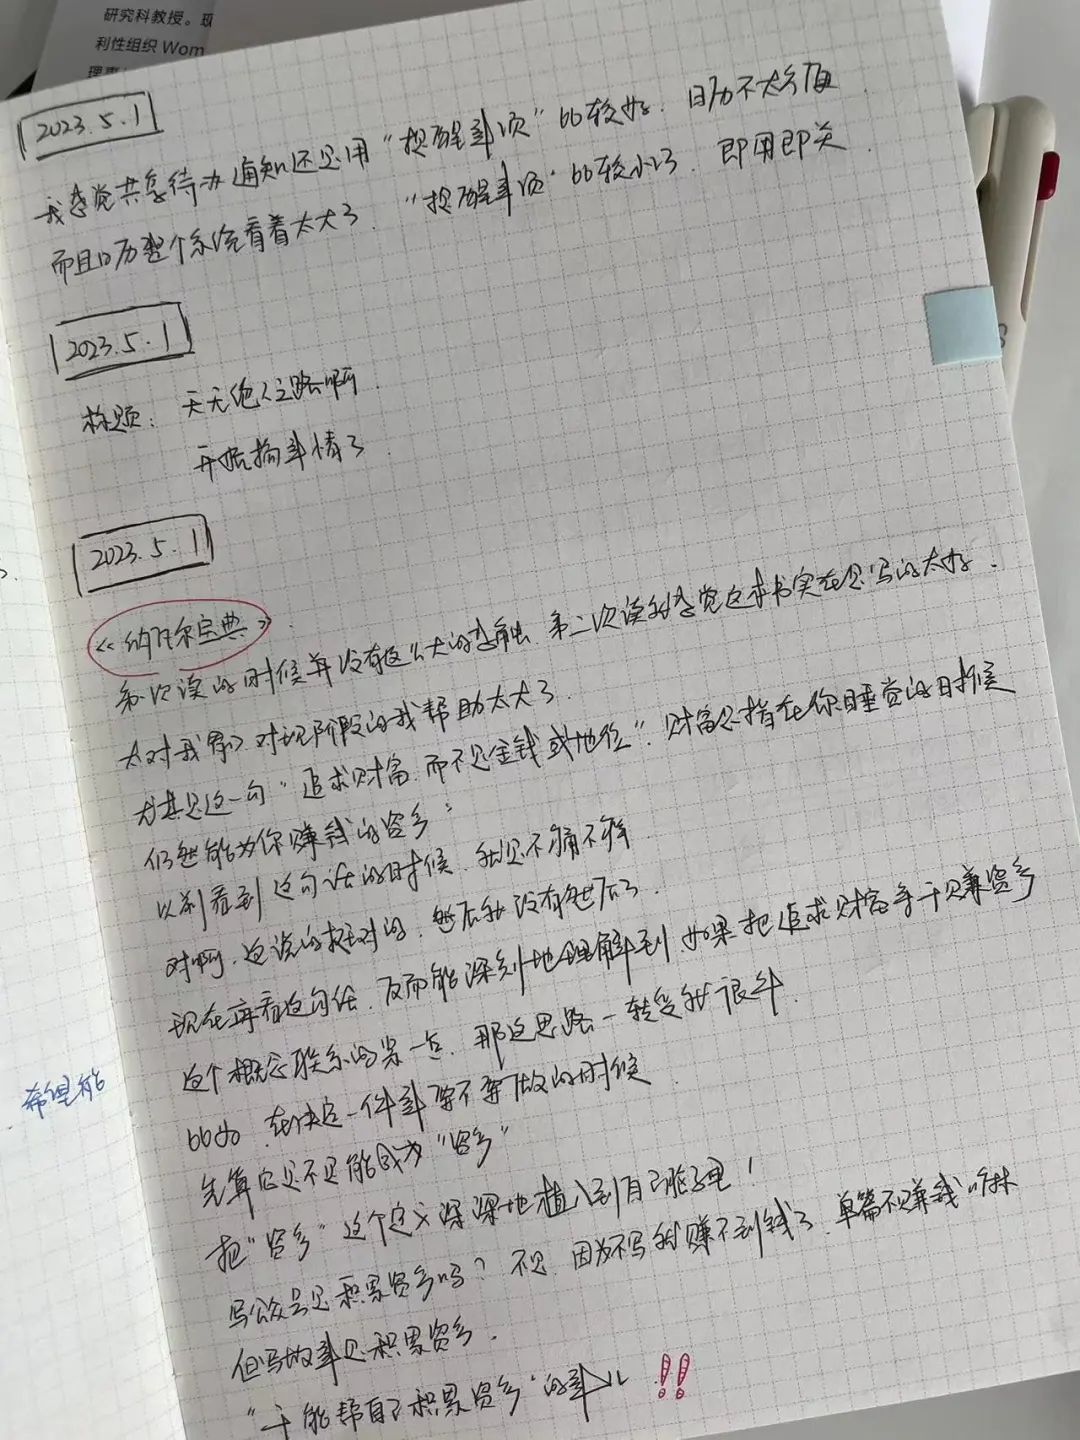 研究科教授。现
利性组织 Wom
理事
2023.5.1
我感觉共享待办通知还是用“提醒事项”比较好. 日历不太合适
而且日历整个系统看着太大了. “提醒事项”比较小巧. 即用即关.
2023.5.1
标题: 天无绝人之路啊.
开始搞事情了
2023.5.1
《纳瓦尔宝典》.
第一次读的时候并没有这么大的感触. 第二次读我感觉这本书实在是写的太好.
太对我胃口 对现阶段的我帮助太大了.
尤其是这一句“追求财富. 而不是金钱或地位”. 财富是指在你睡觉的时候
仍然能为你赚钱的资产”
以前看到这句话的时候. 我是不痛不痒
对啊. 这说的挺对的. 然后就没有然后了.
现在再看这句话. 反而能深刻地理解到. 如果把追求财富等于赚资产
这个概念联系的紧一点. 那这思路一转变就很牛.
比如 在决定一件事要不要做的时候.
先算它是不是能成为“资产”
把“资产”这个定义深深地植入到自己脑子里!
写公众号是积累资产吗? 不是. 因为不写就赚不到钱了. 单篇不赚钱
但写故事是积累资产.
“干能帮自己积累资产”的事儿 !!
希里能